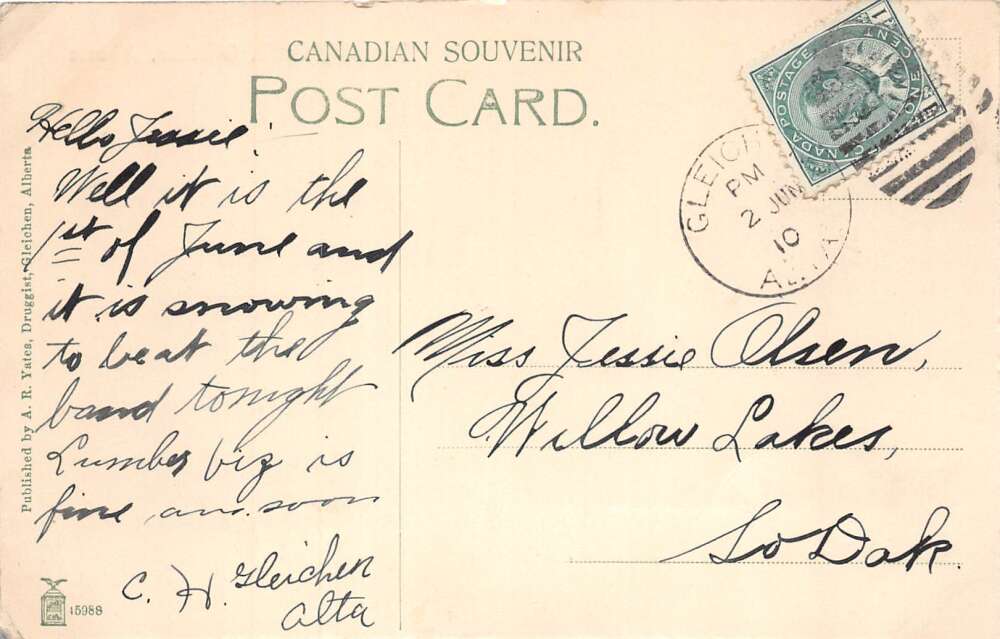 CANADIAN SOUVENIR
POST CARD.
Hello Jessie.
Well it is the
1st of June and
it is snowing
to beat the
band tonight
Lumber biz is
fine soon
C. H. Gleichen
Alta
Miss Jessie Olsen,
Willow Lakes,
So Dak.
GLEICH
PM
2 JUN
10
ALTA
CANADA POSTAGE
ONE CENT
1
Published by A. R. Yates, Druggist, Gleichen, Alberta
15988